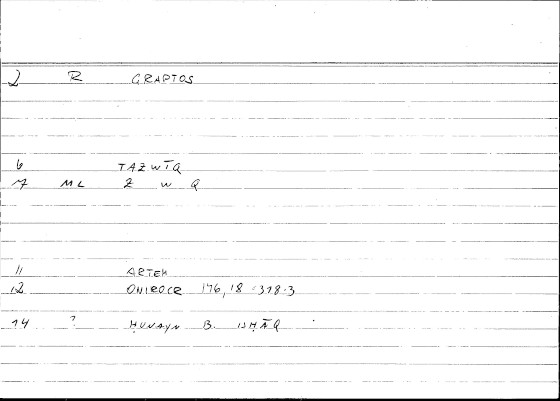 2 R GRAPTOS
6 TAZWĪQ
7 ML Z W Q
11 ARTEM
12 ONIROCR 176,18 = 378.3
14 ? ḤUNAYN B. ISḤĀQ